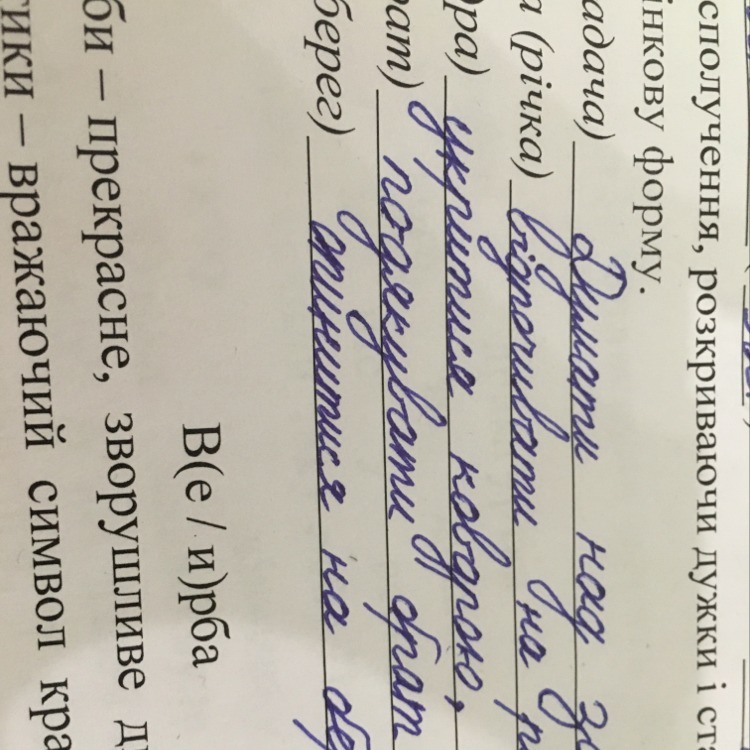 сполучення, розкриваючи дужки і ст
інкову форму.
адача) Думати над
а (річка) відпочивати на р
ра) укритися ковдрою,
рат) подякувати брат
берег) опинитися на бе
В(е / и)рба
би – прекрасне, зворушливе д
тики – вражаючий символ кра